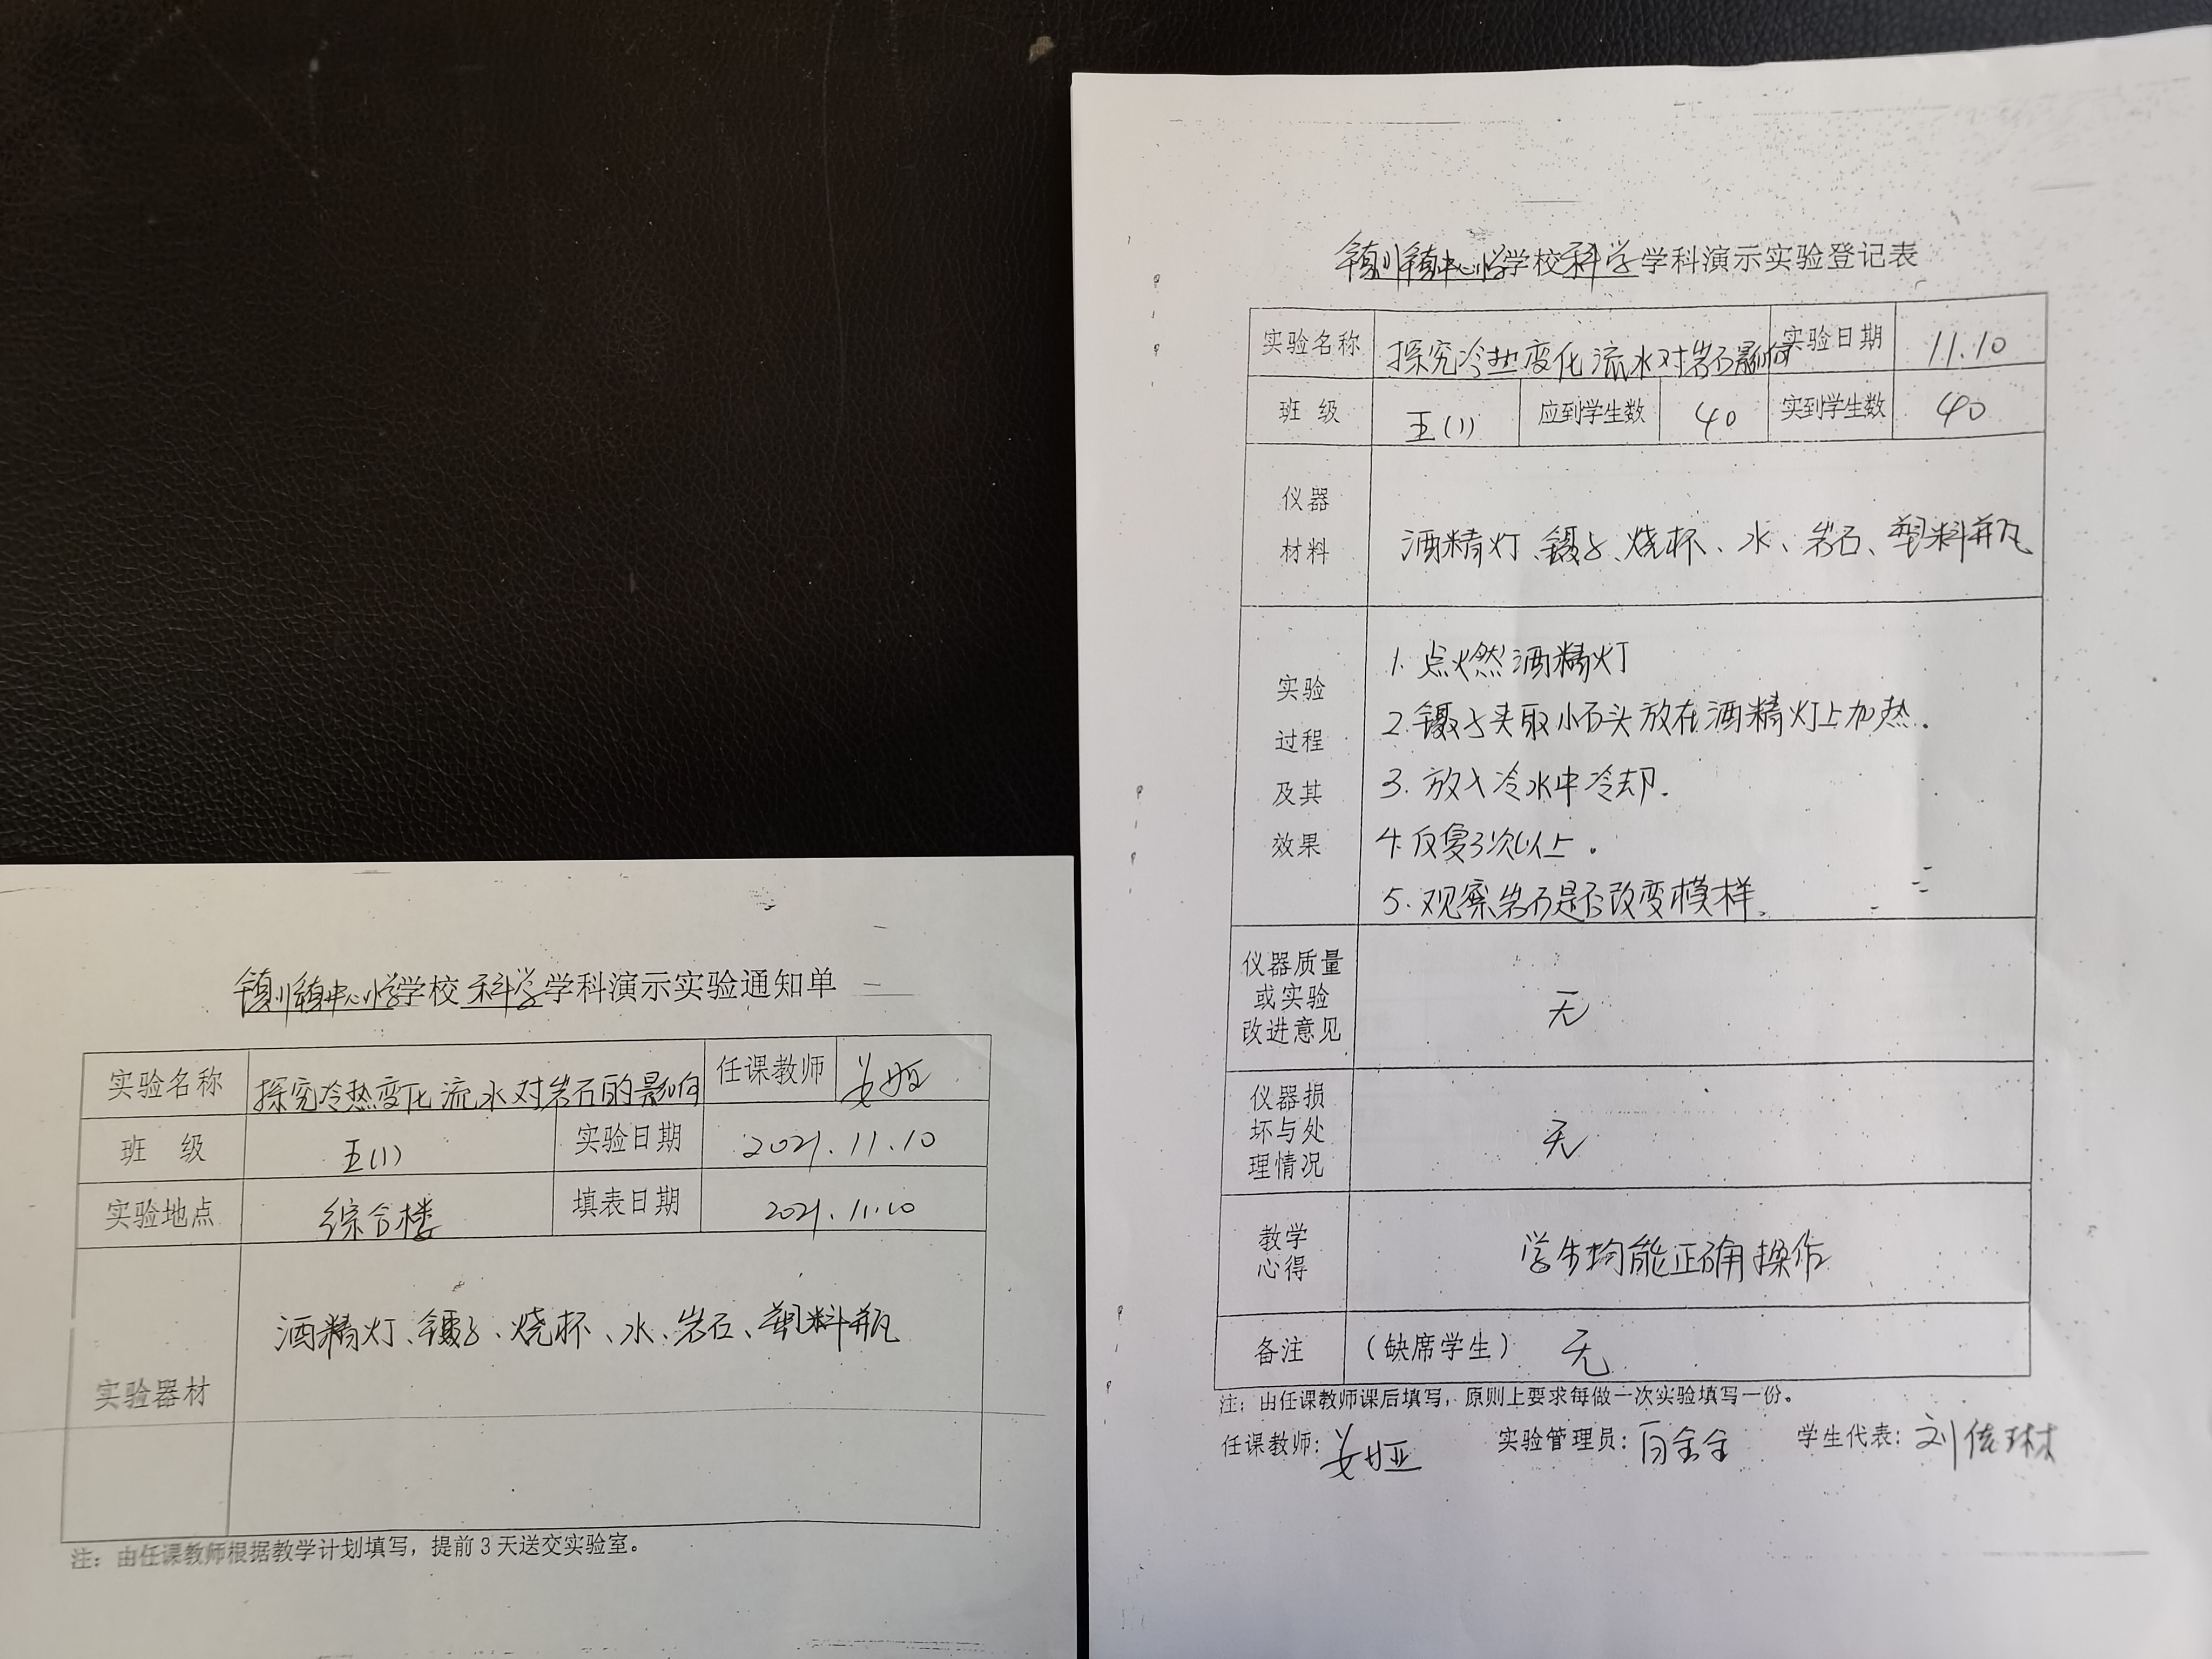 镇川镇中心小学学校科学学科演示实验通知单
实验名称 探究冷热变化流水对岩石的影响 任课教师
班 级 五(1) 实验日期 2021.11.10
实验地点 综合楼 填表日期 2021.11.10
实验器材 酒精灯、镊子、烧杯、水、岩石、塑料瓶
注：由任课教师根据教学计划填写，提前3天送交实验室。
镇川镇中心小学学校科学学科演示实验登记表
实验名称 探究冷热变化流水对岩石影响 实验日期 11.10
班 级 五(1) 应到学生数 40 实到学生数 40
仪器
材料
酒精灯、镊子、烧杯、水、岩石、塑料瓶
实验
过程
及其
效果
1. 点燃酒精灯
2. 镊子夹取小石头放在酒精灯上加热.
3. 放入冷水中冷却.
4. 反复3次以上.
5. 观察岩石是否改变模样.
仪器质量
或实验
改进意见
无
仪器损
坏与处
理情况
无
教学
心得
学生均能正确操作
备注 （缺席学生） 无
注：由任课教师课后填写，原则上要求每做一次实验填写一份。
任课教师： 实验管理员： 学生代表：刘依琳